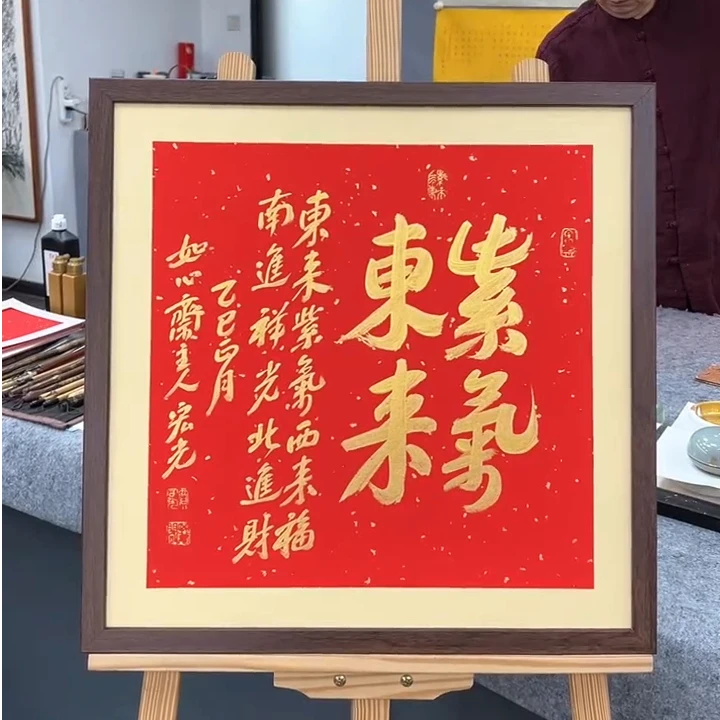 紫氣
東来
東来紫氣西来福
南進祥光北進財
乙巳正月
如心齋主人宏光